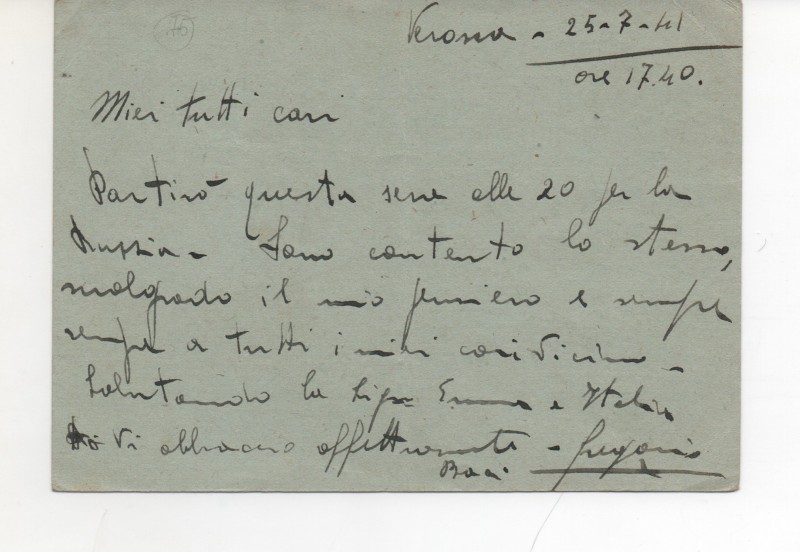 76
Verona - 25-7-41
ore 17.40.
Miei tutti cari
Partirò questa sera alle 20 per la
Russia - Sono contento lo stesso,
malgrado il mio pensiero è sempre
sempre a tutti i miei cari vicino -
Salutando la Sig.ra Emma e Italia
Vi abbraccio affettuosamente -
Baci